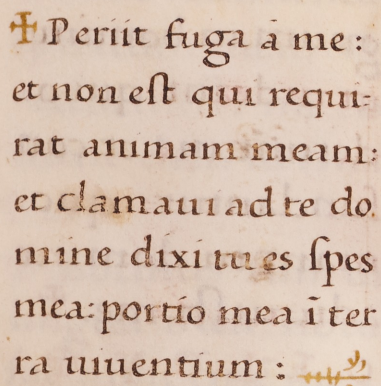 ✝ Periit fuga à me:
et non eſt qui requi-
rat animam meam:
et clamaui ad te do.
mine dixi tu es ſpes
mea: portio mea ī ter
ra uiuentium: